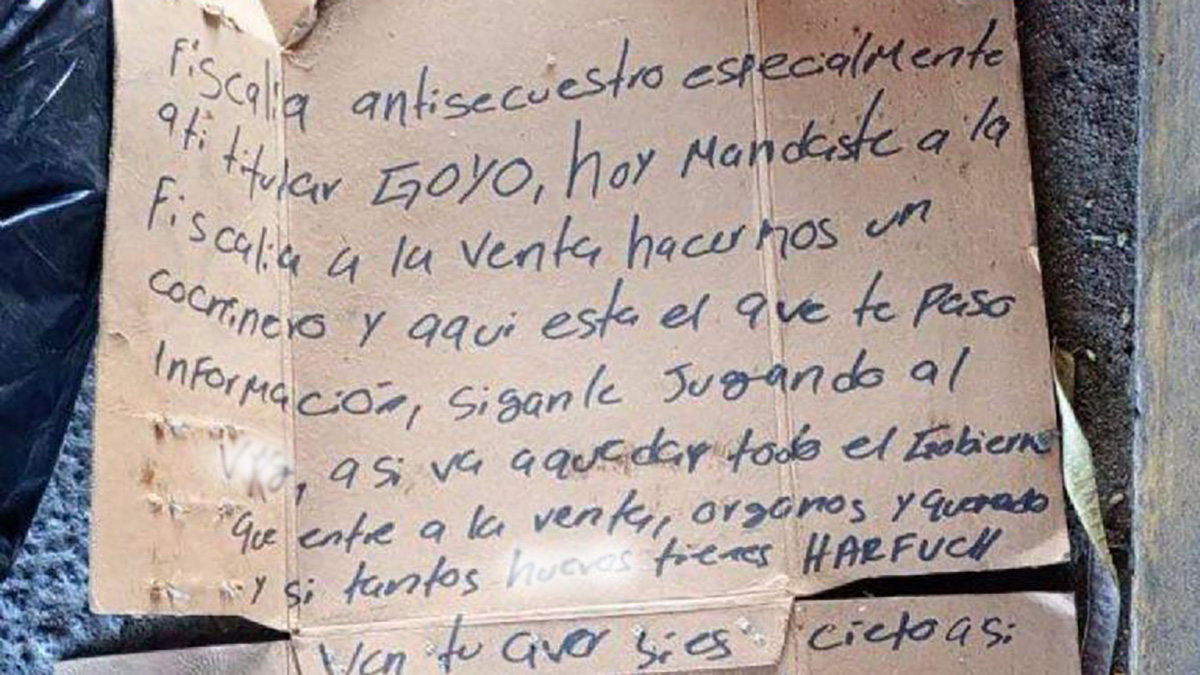 Fiscalia antisecuestro especialmente
a ti titular GOYO, hoy Mandaste a la
Fiscalia a la venta hacernos un
cocrinero y aqui esta el que te paso
Información, siganle Jugando al
, asi va a quedar todo el Gobierno
que entre a la venta, organos y
y si tantos huevos tienes HARFUCH
Ven tu aver si es cierto asi